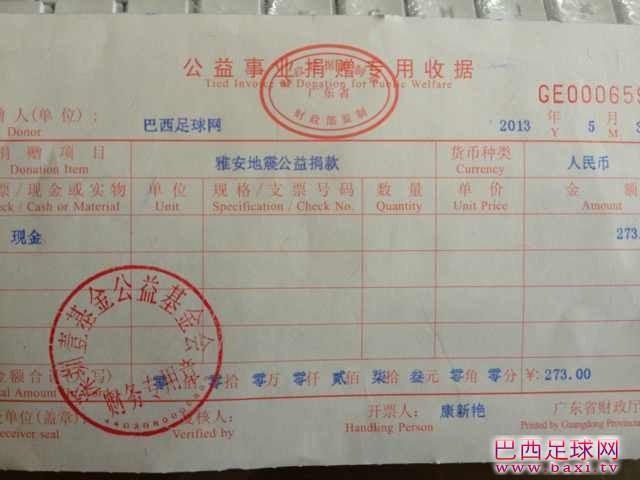 公益事业捐赠专用收据
Tied Invoice of Donation for Public Welfare
广东省
财政部监制
GE000659
赠人(单位): 巴西足球网 2013 年 5 月 3
Donor Y M
捐赠项目 雅安地震公益捐款 货币种类 人民币
Donation Item Currency
票/现金或实物 单位 规格/支票号码 数量 单价 金额
eck / Cash or Material Unit Specification / Check No. Quantity Unit Price Amount
现金 273.
壹基金公益基金会
财务专用章
金额合计 写) 零拾 零万 零仟 贰佰 柒拾 叁元 零角 零分 ¥: 273.00
al Amount
单位(盖章): 复核人: 开票人: 康新艳 广东省财政厅
ceiver seal Verified by Handling Person Printed by Guangdong Provincia
巴西足球网
www.baxi.tv